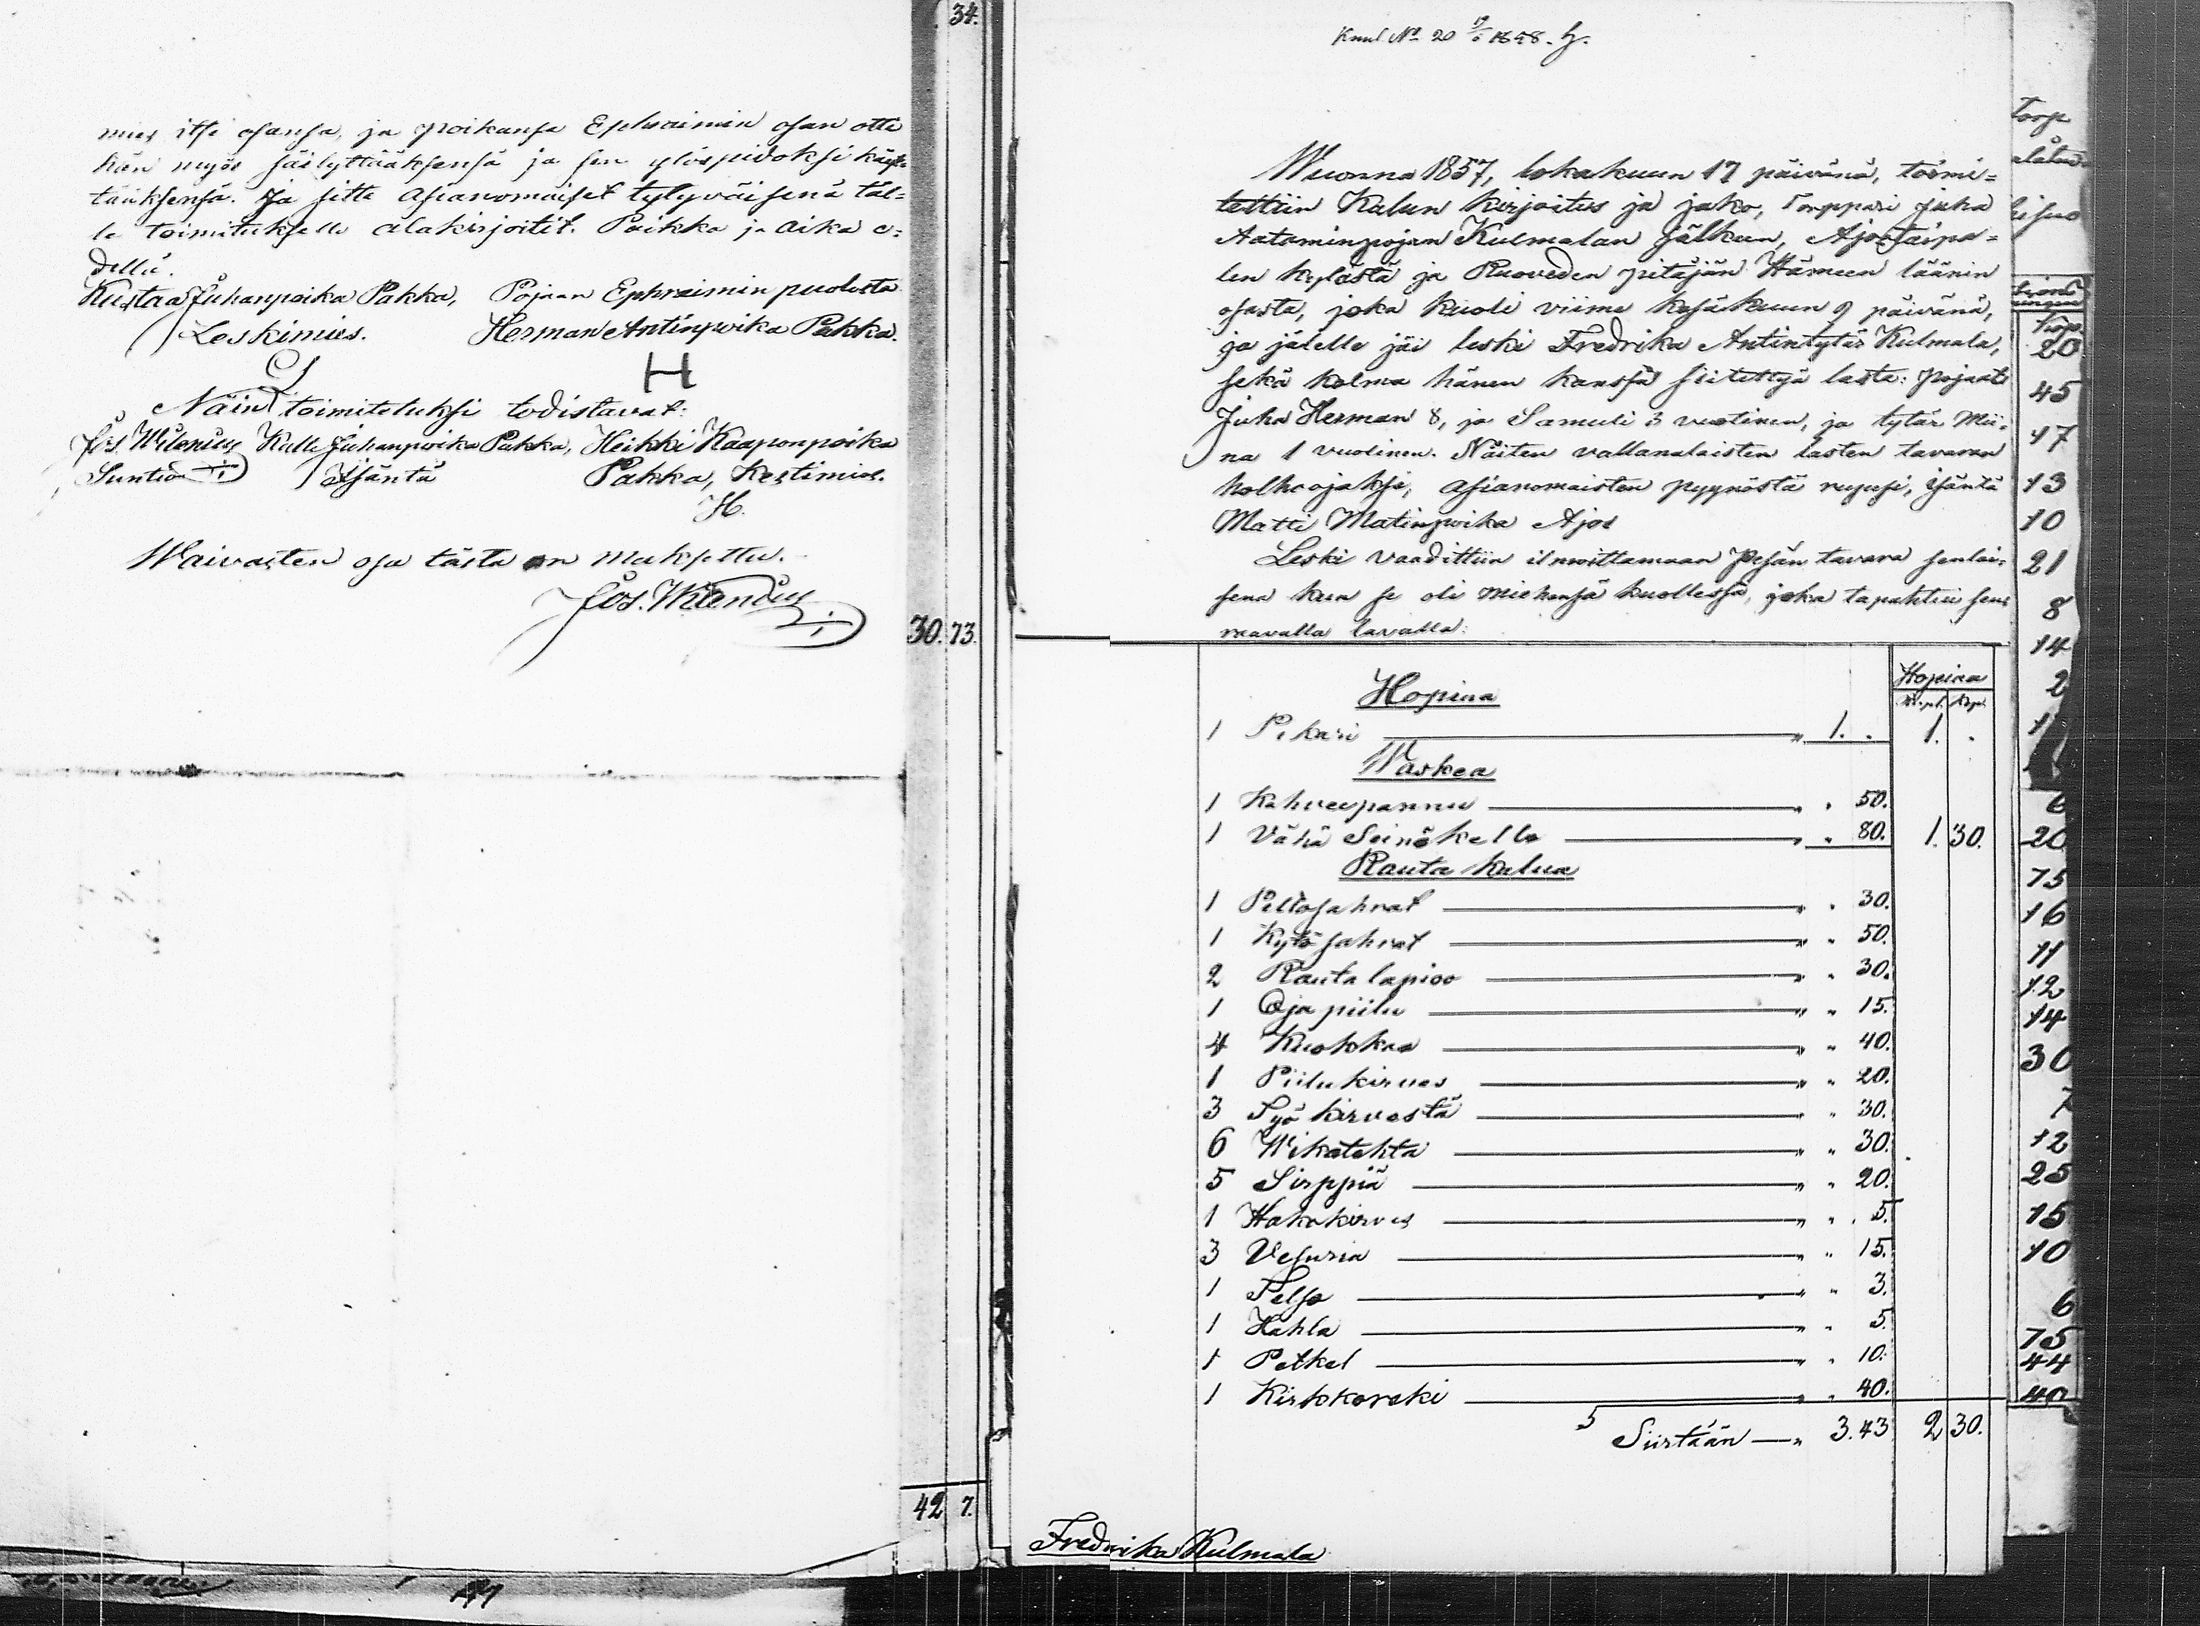 34.
mies itse osansa, ja poikansa Ephraimin osan otti
hän myös säilyttääksensä ja sen ylöspidoksi käyt-
tääksensä. Ja sitte asianomaiset tytyväisenä täl-
le toimitukselle alakirjoitit. Paikka ja aika e-
dellä.
Kustaa Juhanpoika Pakka, Pojan Ephraimin puolesta
Leskimies. Herman Antinpoika Pakka.
H
Näin toimitetuksi todistavat:
Jos. Wilenius Kalle Juhanpoika Pakka, Heikki Kaaponpoika
Suntio Isäntä Pakka, Kestimies.
H.
Waivasten osa tästä on maksettu.
Jos. Wilenius
30. 73.
42 7.
Knul No 20 19/6 1858.
Wuonna 1857, lokakuun 17 päivänä, toimi=
tettiin Kalun kirjoitus ja jako, Torppari Juha
Aataminpojan Kulmalan jälkeen, Ajostaipa=
len kylästä ja Ruoveden pitäjän Hämeen läänin
osasta, joka kuoli viime kesäkuun 9 päivänä,
ja jälelle jäi leski Fredrika Antintytär Kulmala,
sekä kolme hänen kanssa siitettyä lasta: pojaata
Juha Herman 8, ja Samuli 3 vuotinen, ja tytär Mii-
na 1 vuotinen. Näiten vallanalaisten lasten tavaran
holhoojaksi, asianomaisten pyynöstä rupesi, isäntä
Matti Matinpoika Ajos
Leski vaadittiin ilmoittamaan Pesän tavara senlai-
sena kun se oli miehensä kuollessa, joka tapahtui seu
raavalla tavalla:
Hopiaa
Rupl. Kop.
Hopiaa
1 Pikari — „ 1. . 1. .
Waskea
1 Kahveepannu — „ „ 50.
1 Vähä Seinäkello — „ „ 80. 1. 30.
Rauta kalua
1 Peltosahrat — „ „ 30.
1 Kytösahrat — „ „ 50.
2 Rauta lapioo — „ „ 30.
1 Oja piilu — „ „ 15.
4 Kuokkaa — „ „ 40.
1 Piilukirves — „ „ 20.
3 Työ kirvestä — „ „ 30.
6 Wikatehta — „ „ 30.
5 Sirppiä — „ „ 20.
1 Hakokirves — „ „ 5.
3 Vesuria — „ „ 15.
1 Telso — „ „ 3.
1 Kahla — „ „ 5.
1 Petkel — „ „ 10.
1 Kirkkoreki — „ „ 40.
Siirtään — „ 3.43 2 30.
Fredrika Kulmala
Torp
20
45
17
13
10
21
8
14
2
20
75
16
11
12
14
30
7
12
25
15
10
6
75
44
40